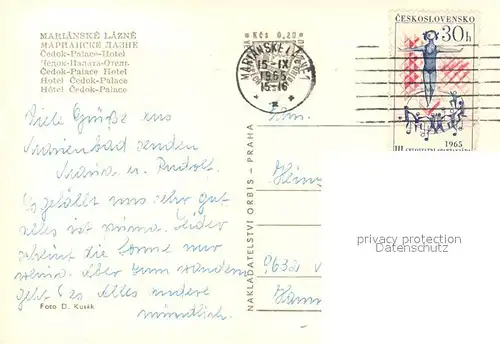 MARIÁNSKÉ LÁZNĚ
МАРИАНСКЕ ЛАЗНЕ
Čedok-Palace-Hotel
Чедок-Палаца-Отель
Čedok-Palace Hotel
Hotel Čedok-Palace
Hôtel Čedok-Palace
Kčs 0,20
MARIÁNSKÉ LÁZNĚ
15-IX
1965
15-16
ČESKOSLOVENSKO
30h
1965
III
Viele Grüße aus
Marienbad senden
Maria u. Rudolf.
Es gefällt uns sehr gut
alles ist prima. Leider
scheint die Sonne nur
wenig. Aber zum wandern
geht es. Alles andere
mündlich.
Foto D. Kusák
NAKLADATELSTVÍ ORBIS – PRAHA
Fam.
Heinz
963
privacy protection
AnsichtskartenVersand.com